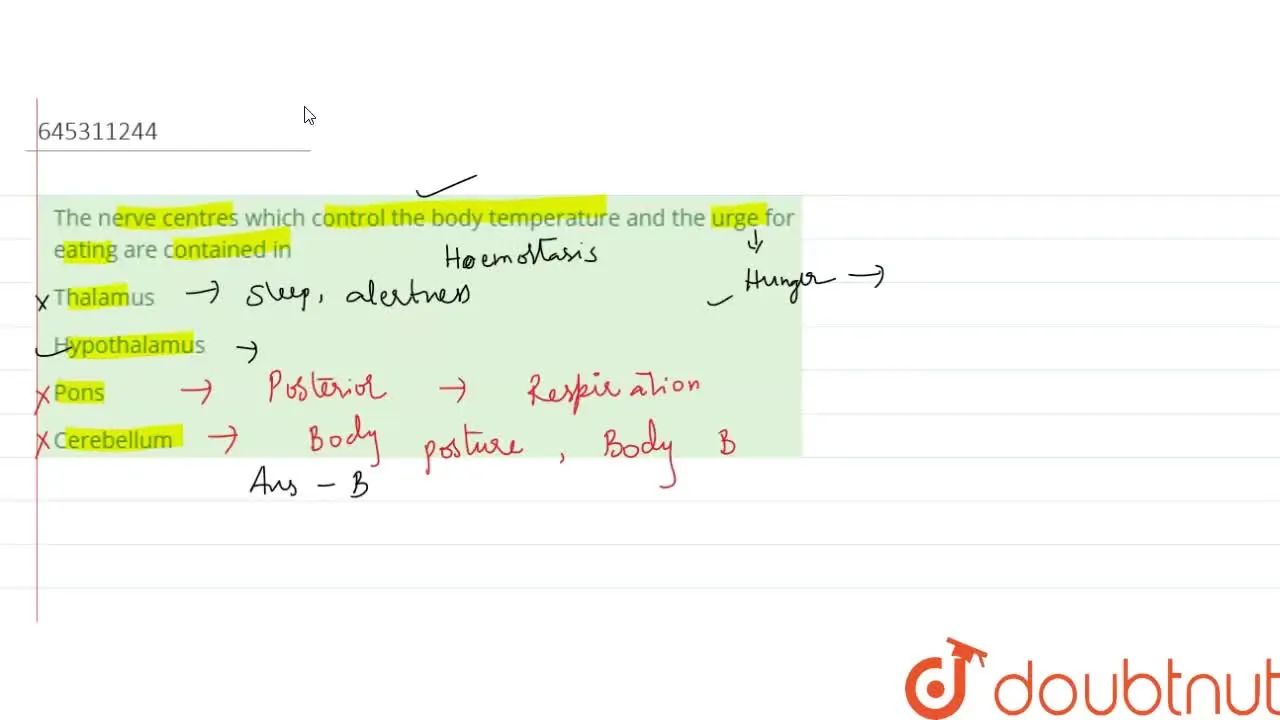 645311244
The nerve centres which control the body temperature and the urge for
eating are contained in
Haemostasis
Hunger →
Thalamus → Sleep, alertness
Hypothalamus →
Pons → Posterior → Respiration
Cerebellum → Body posture, Body B
Ans - B
doubtnut